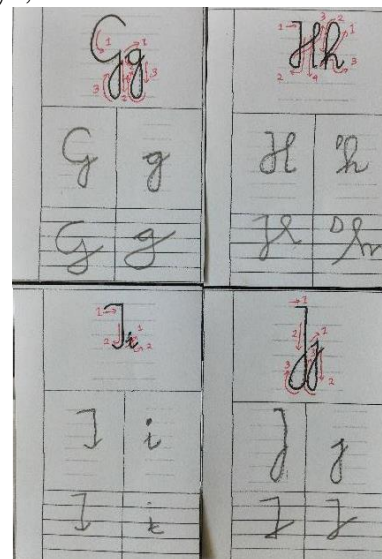 Gg
G g
G g
Hh
H h
H h
Ii
I i
I i
Jj
J j
J j